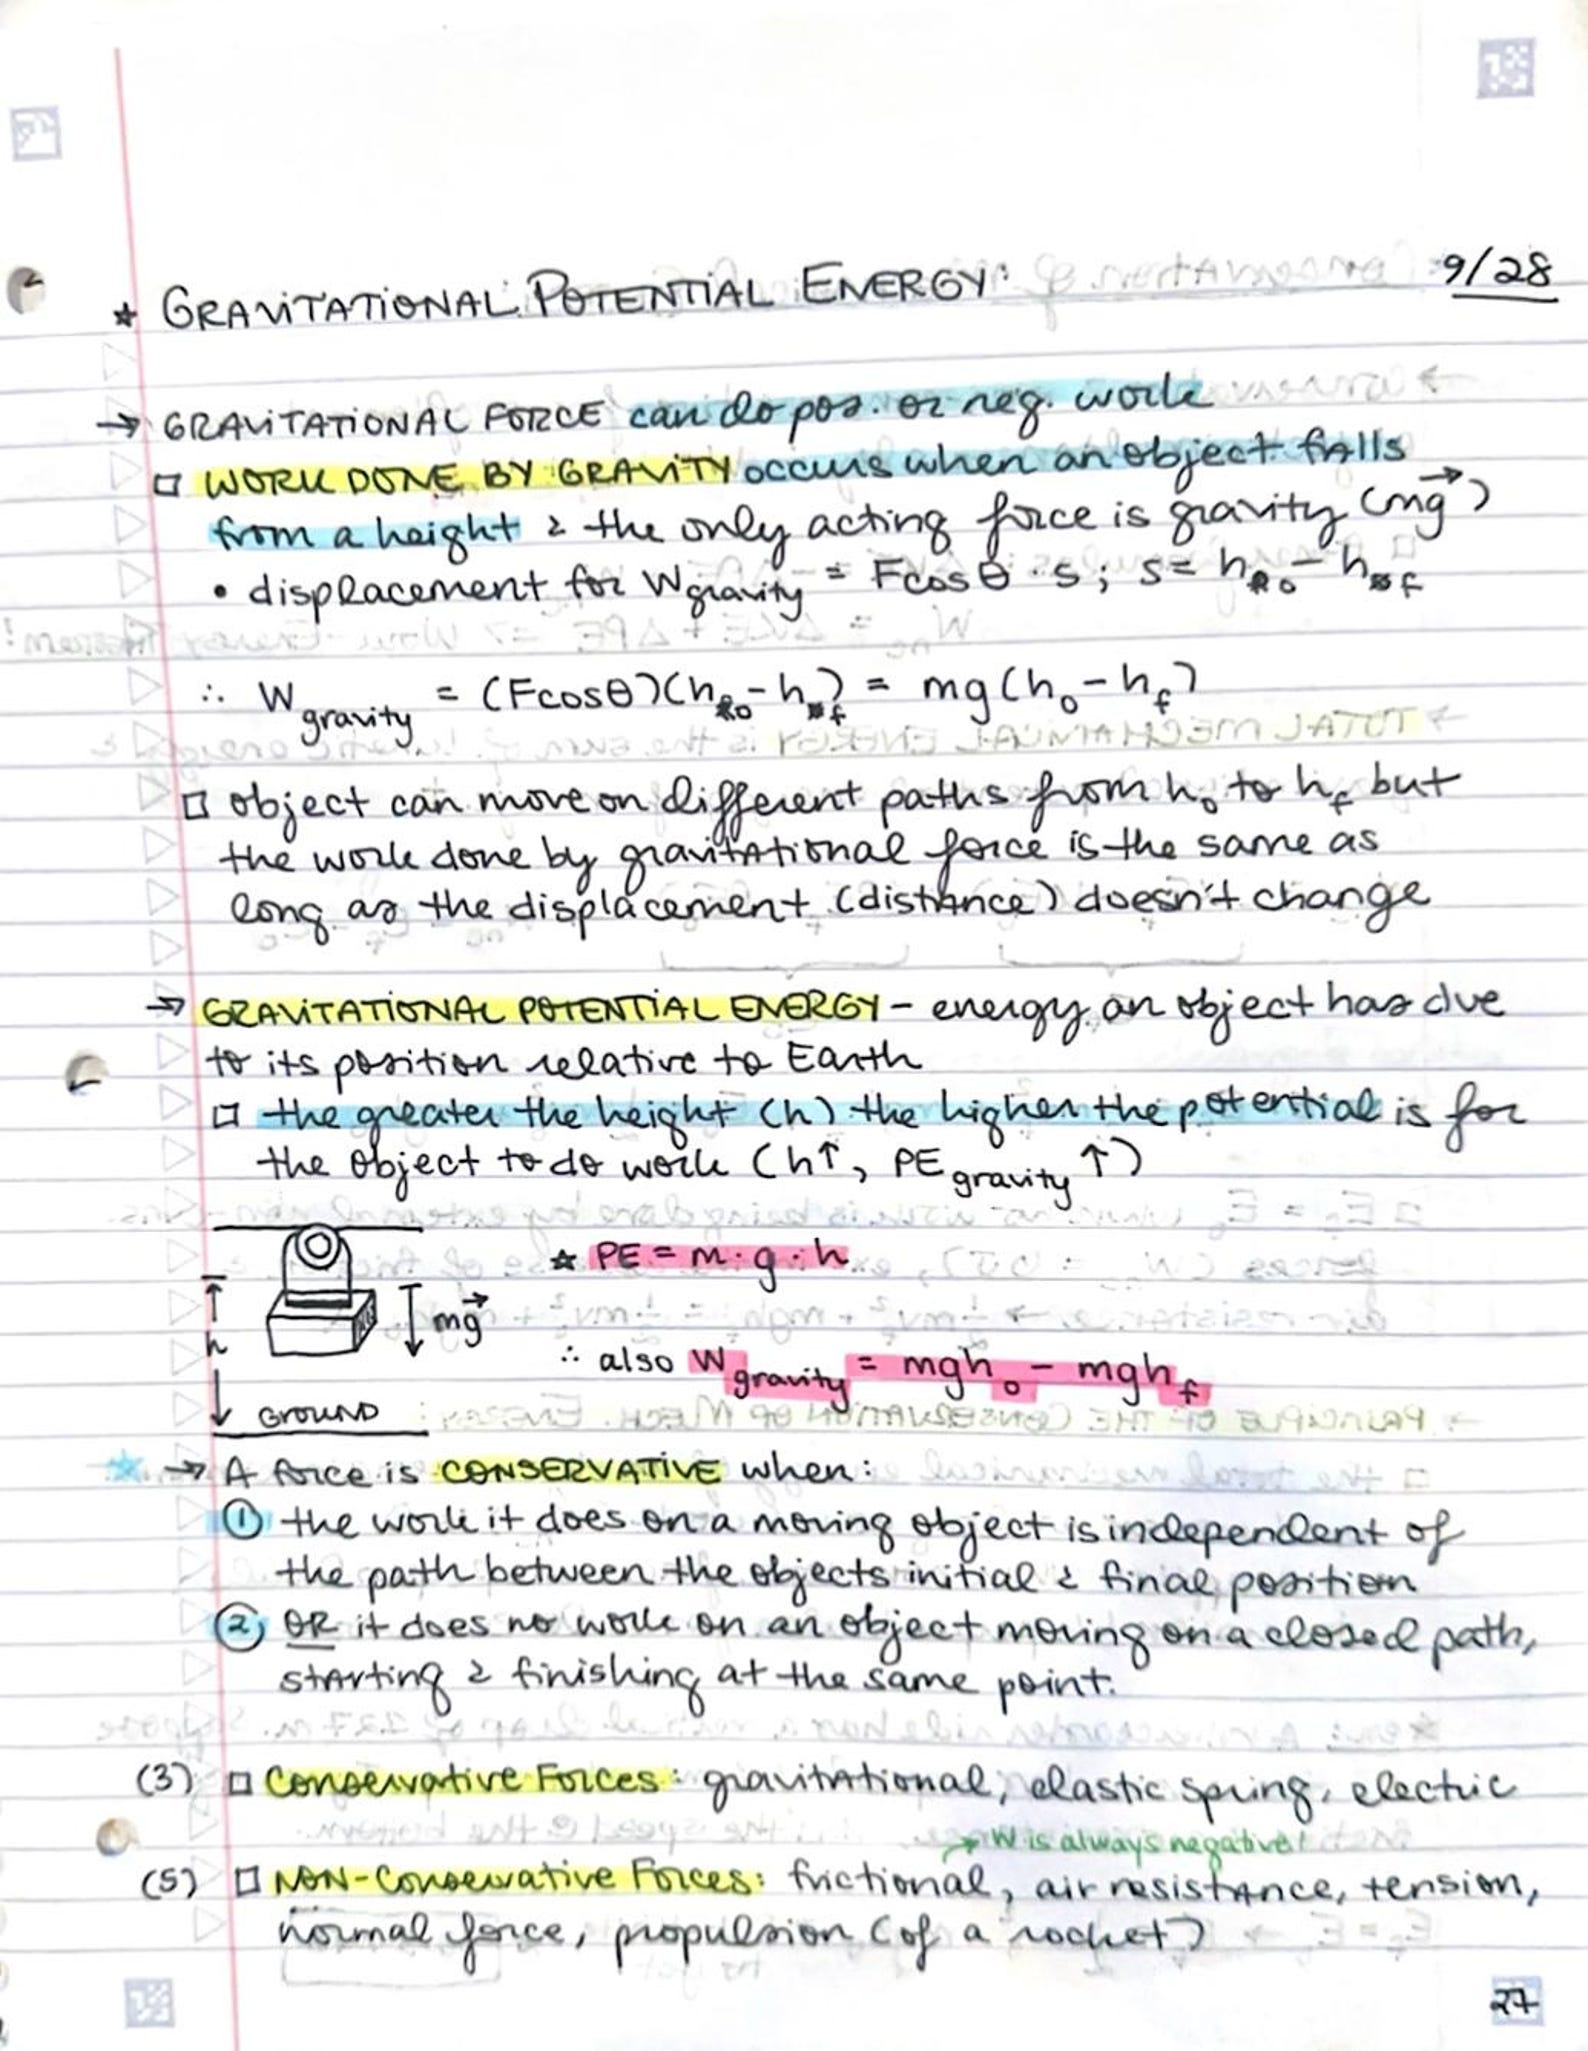 9/28
★ GRAVITATIONAL POTENTIAL ENERGY:
→ GRAVITATIONAL FORCE can do pos. or neg. work
□ WORK DONE BY GRAVITY occurs when an object falls
from a height & the only acting force is gravity (mg⃗)
• displacement for W_gravity = Fcosθ · s; s = h₀ - h_f
∴ W_gravity = (Fcosθ)(h₀ - h_f) = mg(h₀ - h_f)
□ object can move on different paths from h₀ to h_f but
the work done by gravitational force is the same as
long as the displacement (distance) doesn't change
→ GRAVITATIONAL POTENTIAL ENERGY – energy an object has due
to its position relative to Earth
□ the greater the height (h) the higher the potential is for
the object to do work (h↑, PE_gravity ↑)
★ PE = m · g · h
h
mg⃗
∴ also W_gravity = mgh₀ - mgh_f
GROUND
★ → A force is CONSERVATIVE when:
① the work it does on a moving object is independent of
the path between the objects initial & final position
② OR it does no work on an object moving on a closed path,
starting & finishing at the same point.
(3) □ Conservative Forces: gravitational, elastic spring, electric
→ W is always negative!
(5) □ NON-Conservative Forces: frictional, air resistance, tension,
normal force, propulsion (of a rocket)
27